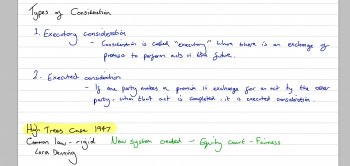 Types of Consideration
1. Executory consideration
- Consideration is called "executory" when there is an exchange of
promises to perform acts in the future.
2. Executed consideration
- If one party makes a promise in exchange for an act by the other
party, when that act is completed, it is executed consideration.
High Trees Case 1947
Common law - rigid New system created - Equity court - Fairness
Lord Denning